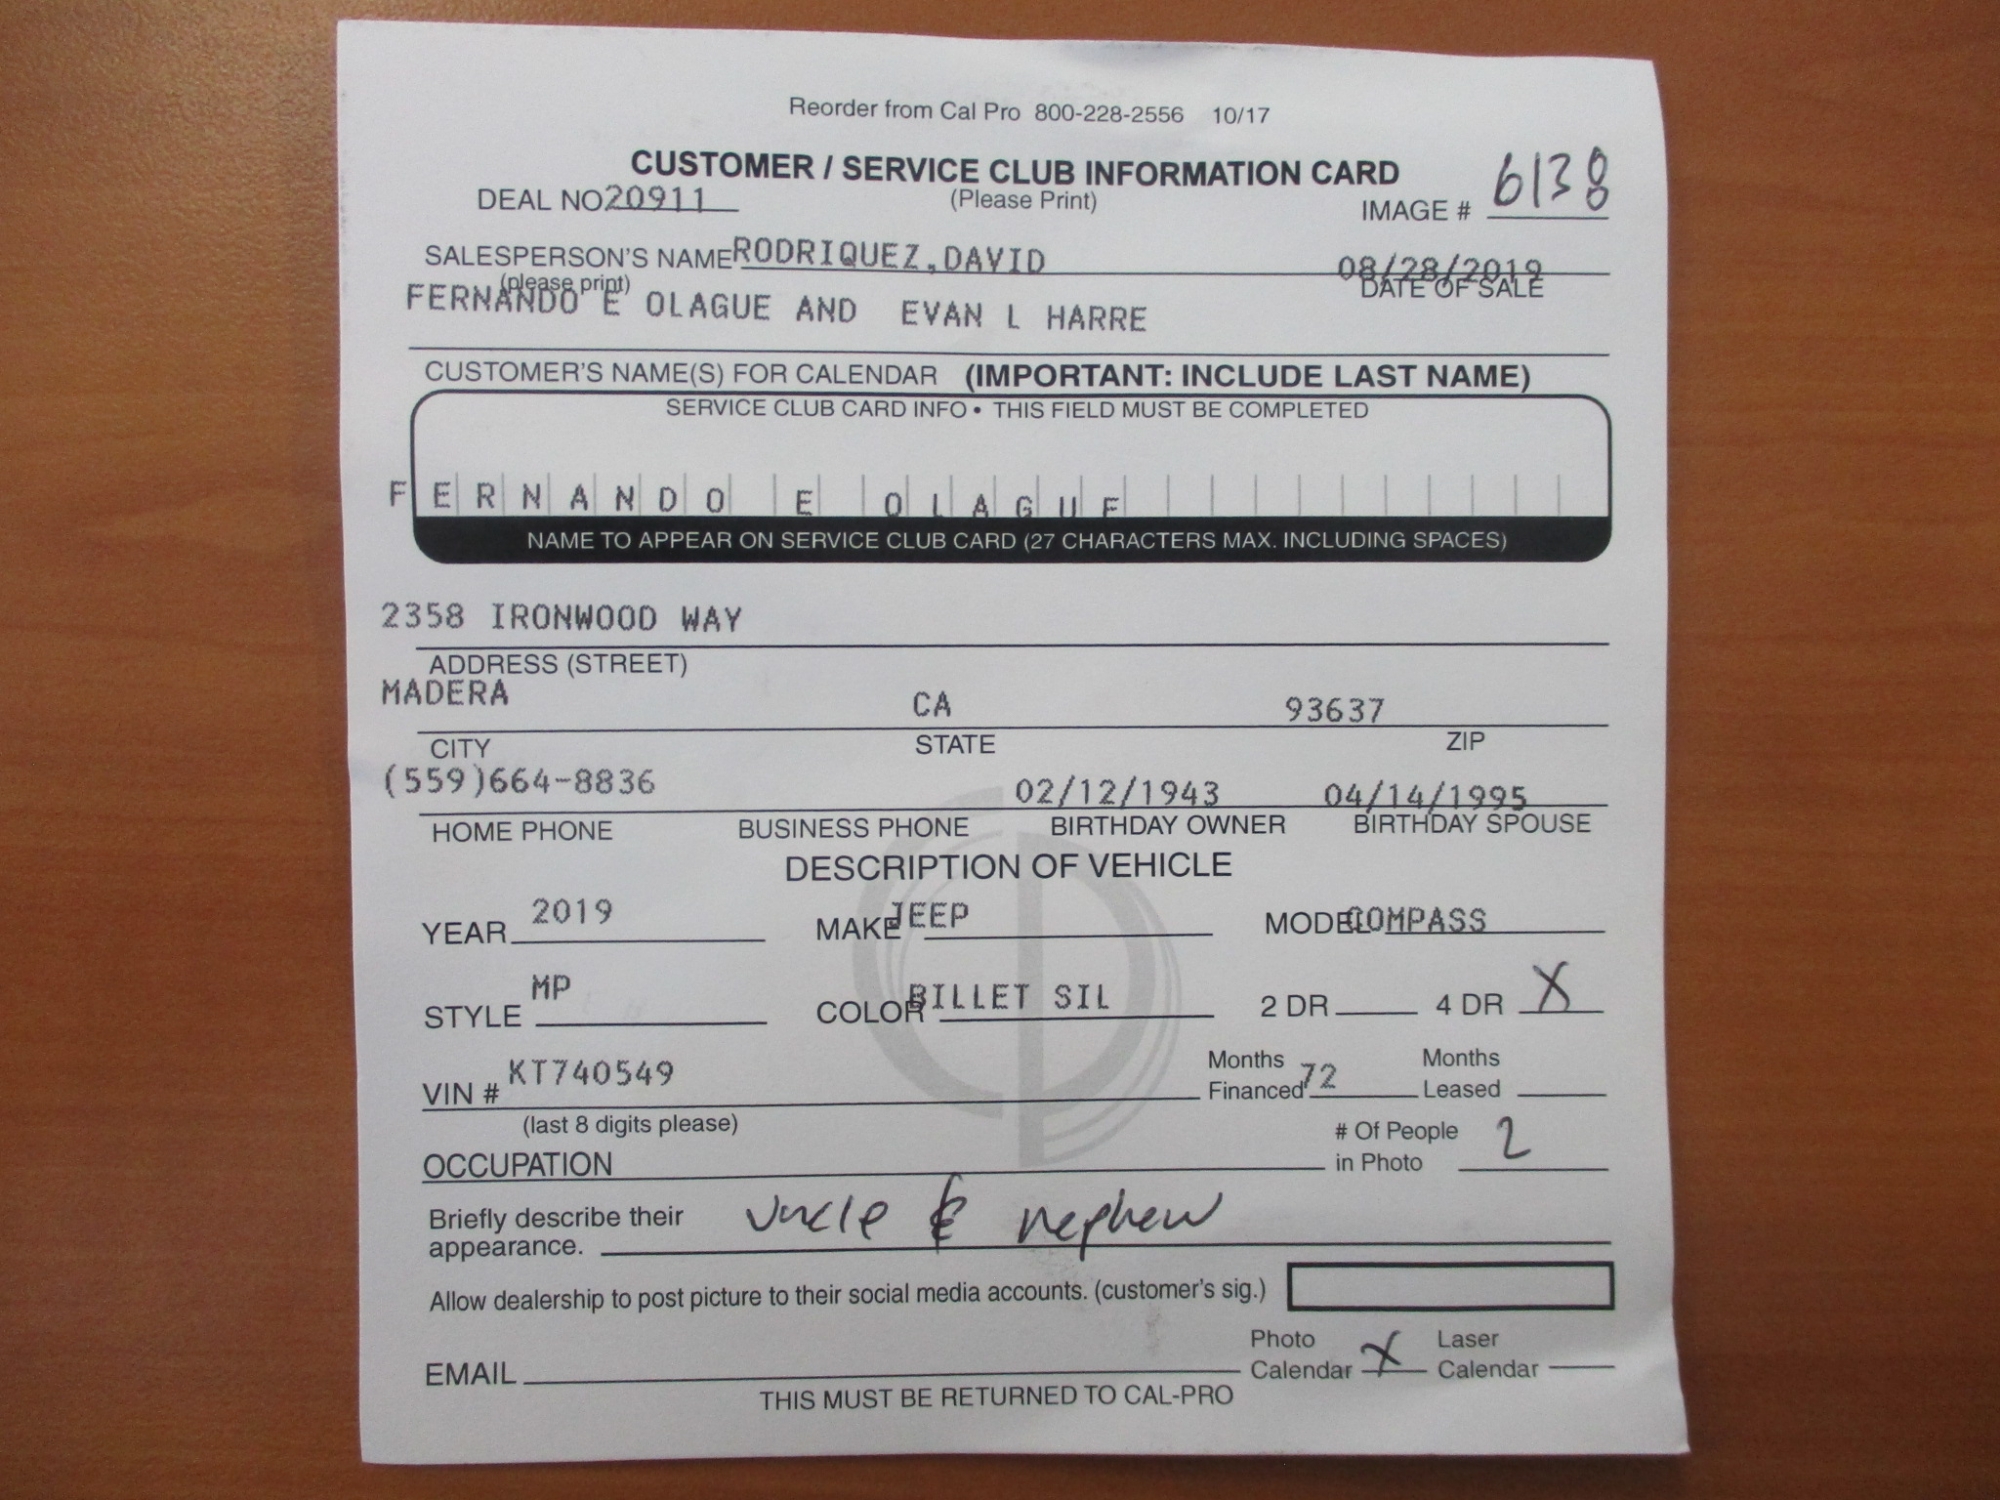 Reorder from Cal Pro 800-228-2556 10/17
CUSTOMER / SERVICE CLUB INFORMATION CARD
DEAL NO 20911 (Please Print) IMAGE # 6138
SALESPERSON'S NAME RODRIQUEZ,DAVID 08/28/2019
(please print) DATE OF SALE
FERNANDO E OLAGUE AND EVAN L HARRE
CUSTOMER'S NAME(S) FOR CALENDAR (IMPORTANT: INCLUDE LAST NAME)
SERVICE CLUB CARD INFO • THIS FIELD MUST BE COMPLETED
FERNANDO E OLAGUE
NAME TO APPEAR ON SERVICE CLUB CARD (27 CHARACTERS MAX. INCLUDING SPACES)
2358 IRONWOOD WAY
ADDRESS (STREET)
MADERA CA 93637
CITY STATE ZIP
(559)664-8836 02/12/1943 04/14/1995
HOME PHONE BUSINESS PHONE BIRTHDAY OWNER BIRTHDAY SPOUSE
DESCRIPTION OF VEHICLE
YEAR 2019 MAKE JEEP MODEL COMPASS
STYLE MP COLOR BILLET SIL 2 DR 4 DR X
VIN # KT740549 Months Financed 72 Months Leased
(last 8 digits please)
OCCUPATION # Of People in Photo 2
Briefly describe their appearance. Uncle & nephew
Allow dealership to post picture to their social media accounts. (customer's sig.)
EMAIL Photo Calendar X Laser Calendar
THIS MUST BE RETURNED TO CAL-PRO